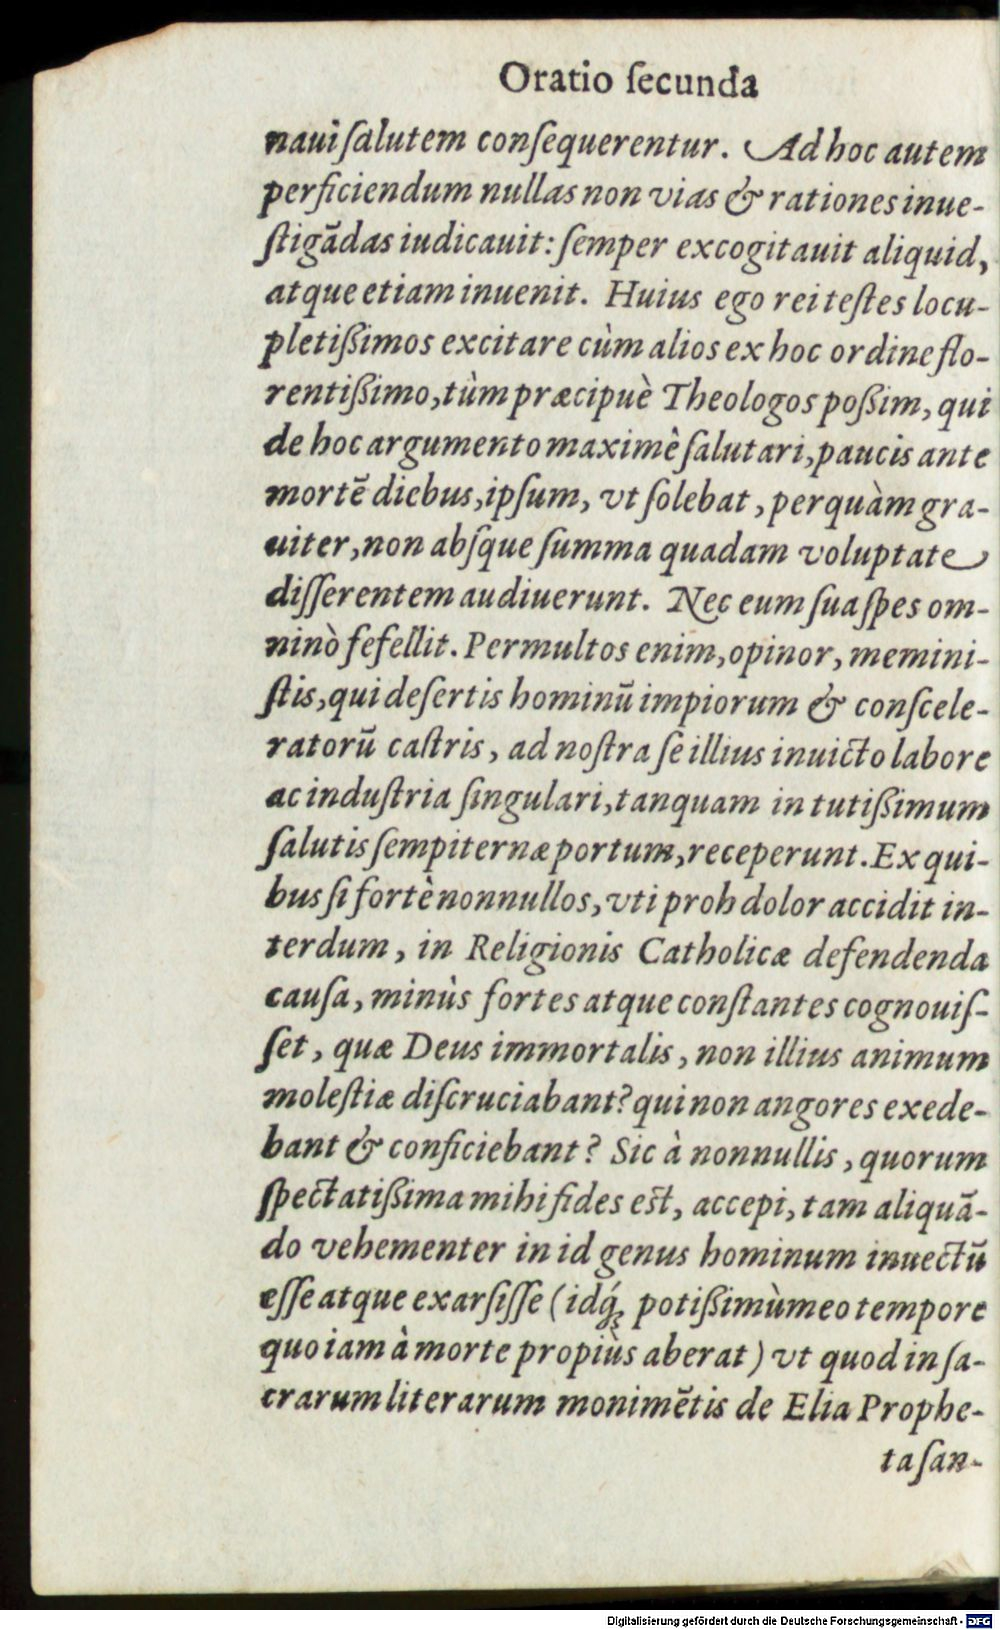 Oratio ſecunda
naui ſalutem conſequerentur. Ad hoc autem
perficiendum nullas non vias & rationes inue-
ſtigādas iudicauit: ſemper excogitauit aliquid,
atque etiam inuenit. Huius ego rei teſtes locu-
pletißimos excitare cùm alios ex hoc ordine flo-
rentißimo, tùm præcipuè Theologos poßim, qui
de hoc argumento maximè ſalutari, paucis ante
mortē diebus, ipſum, vt ſolebat, perquàm gra-
uiter, non abſque ſumma quadam voluptate
diſſerentem audiuerunt. Nec eum ſua ſpes om-
ninò fefellit. Permultos enim, opinor, memini-
ſtis, qui deſertis hominū impiorum & conſcele-
ratorū caſtris, ad noſtra ſe illius inuicto labore
ac induſtria ſingulari, tanquam in tutißimum
ſalutis ſempiternæ portum, receperunt. Ex qui-
bus ſi fortè nonnullos, vti proh dolor accidit in-
terdum, in Religionis Catholicæ defendenda
cauſa, minùs fortes atque conſtantes cognouiſ-
ſet, quæ Deus immortalis, non illius animum
moleſtiæ diſcruciabant? qui non angores exede-
bant & conficiebant? Sic à nonnullis, quorum
ſpectatißima mihi fides eſt, accepi, tam aliquā-
do vehementer in id genus hominum inuectū
eſſe atque exarſiſſe (idq́; potißimùm eo tempore
quo iam à morte propiùs aberat) vt quod in ſa-
crarum literarum monimētis de Elia Prophe-
ta ſan-
Digitalisierung gefördert durch die Deutsche Forschungsgemeinschaft - DFG